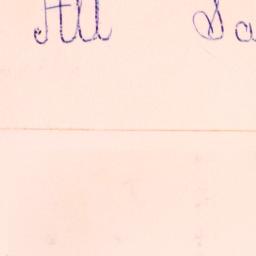 All Sa